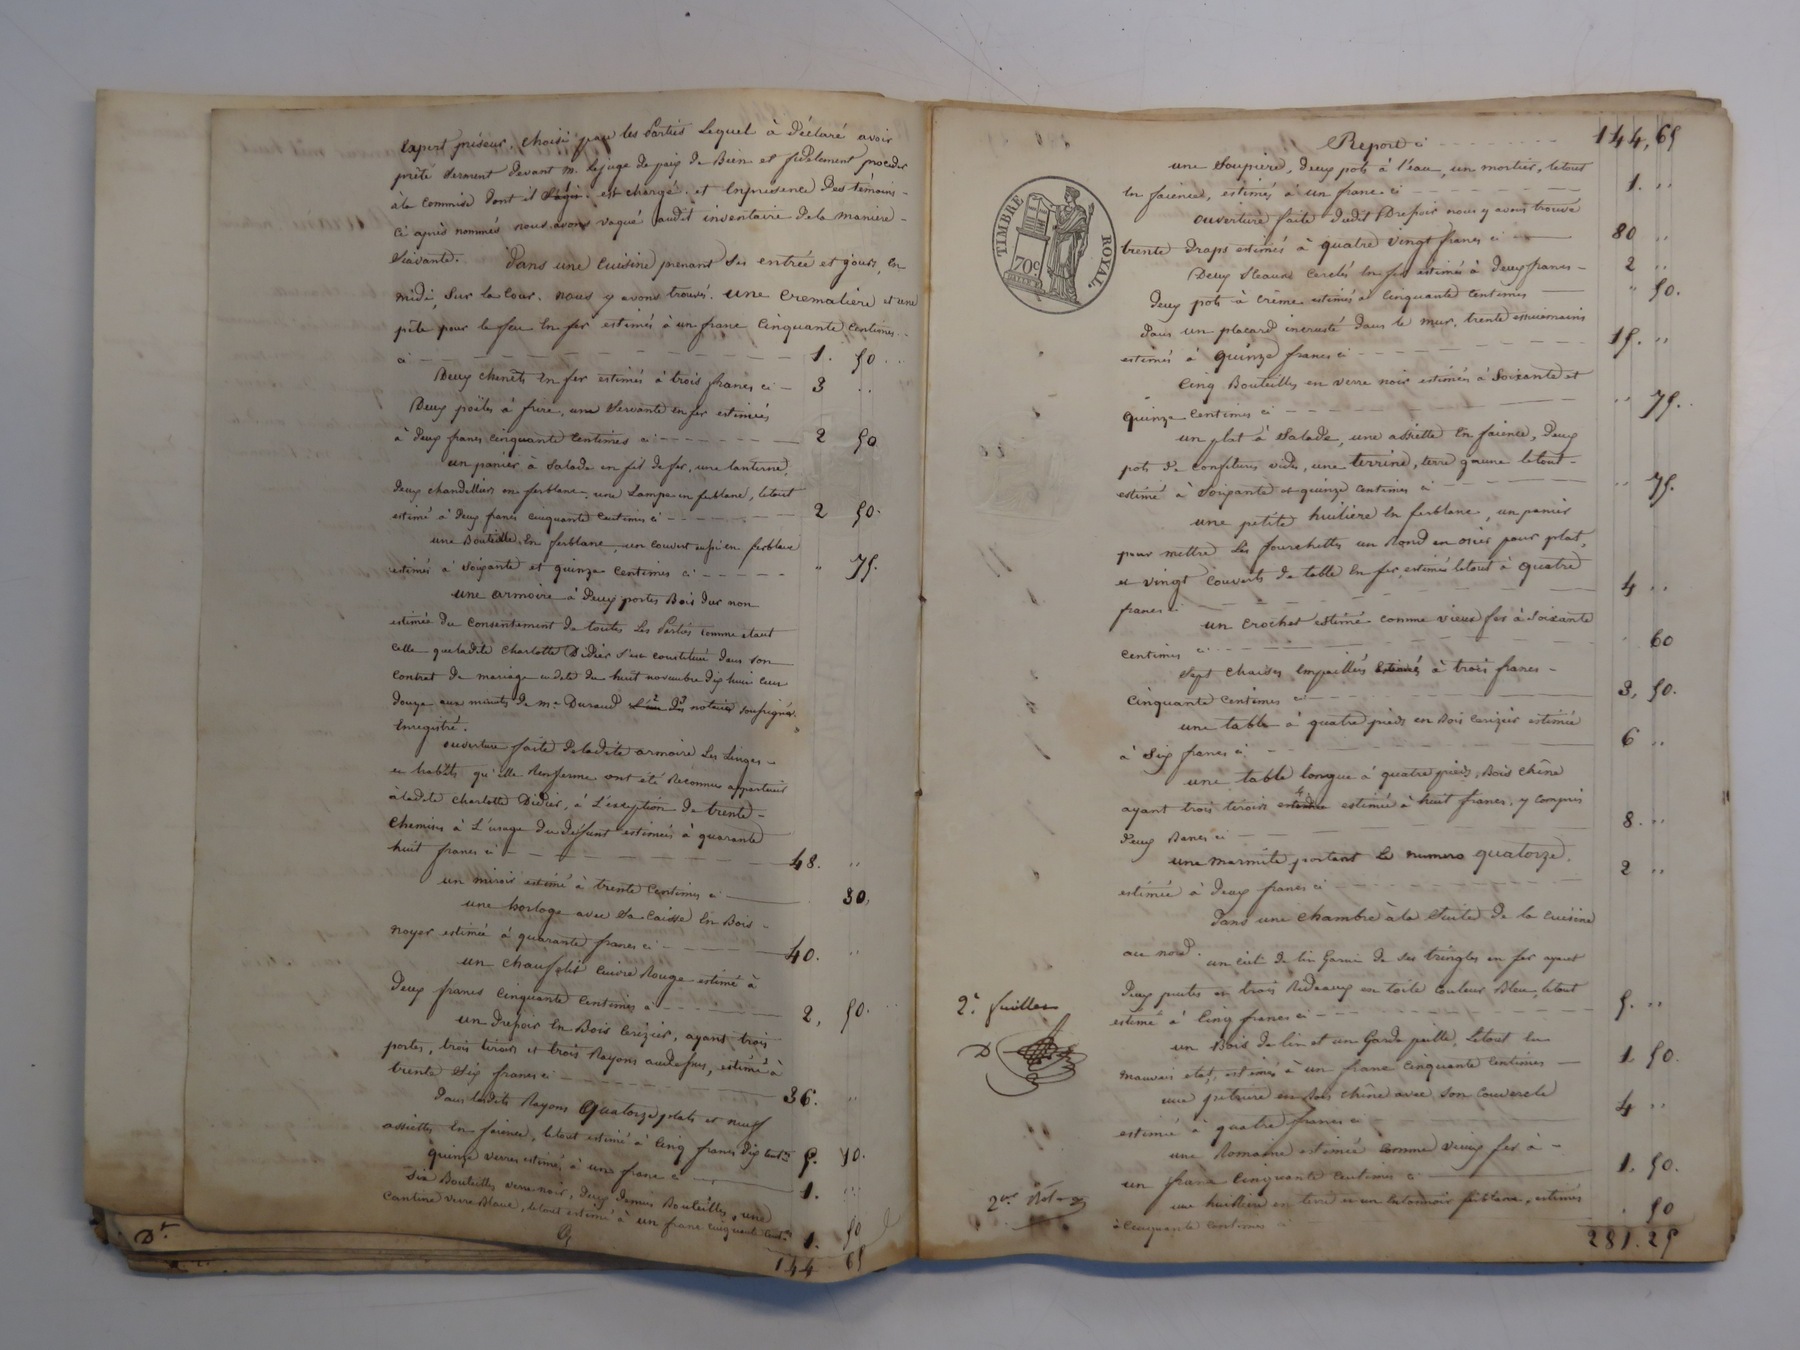 Expert priseur, choisi par les Parties Lequel à Déclaré avoir
prêté Serment Devant m. Le juge de paix de Bien et fidèlement proceder
à la Commise dont il s'agit est chargé. et En presence Des témoins
ci après nommés nous avons vaqué audit inventaire de la maniere
Suivante. Dans une Cuisine prenant Ses entrée et jours, en
midi, Sur la Cour. nous y avons trouvés. une Cremaliere et une
pèle pour le feu En fer estimés à un franc Cinquante Centimes
ci 1. 50
Deux chenêts En fer estimés à trois francs ci 3 ..
Deux poëles à frire, une Servante en fer estimées
à Deux francs Cinquante Centimes ci 2 50
un panier à Salade en fil de fer, une lanterne,
Deux chandelliers en ferblanc, une Lampe en ferblanc, letout
estimé à Deux francs Cinquante Centimes ci 2 50.
une Bouteille En ferblanc, un Couvert aussi en ferblanc
estimés à Soixante et quinze Centimes ci " 75.
une armoire à Deux portes Bois dur non
estimée Du Consentement De toutes Les Parties comme étant
Celle que ladite Charlotte Didier s'est constituée Dans son
Contrat De mariage en date du huit novembre Dix huit cent
Douze aux minutes De me. Durand notaire soussigné.
Enregistré.
ouverture faite De ladite armoire Les Linges
et habits qu'elle Renferme ont été Reconnus appartenir
à ladite Charlotte Didier, à L'exception De trente
Chemises à L'usage du Défunt estimées à quarante
huit francs ci 48. "
un miroir estimé à trente Centimes ci 30,
une horloge avec Sa Caisse En Bois
noyer estimée à quarante francs ci 40. "
un Chauf lit Cuivre Rouge estimé à
Deux francs Cinquante Centimes ci 2, 50.
un Drepoir En Bois Cerizier, ayant trois
portes, trois tiroirs et trois Rayons audessus, estimé à
trente Six francs ci 36. "
Dans lesdits Rayons Quatorze plats et neuf
assiettes En faience, letout estimé à Cinq francs Dix cent.es 5. 10.
quinze verres estimés à un franc ci 1. "
Six Bouteilles verre noir, Deux Demies Bouteilles, une
Cantine verre Blanc, letout estimé à un franc Cinquante cent.es 1. 50
144 65
D.r
Report ci 144, 65
une Soupiere, Deux pots à l'eau, un mortier, letout
En faience, estimés à un franc ci 1. "
ouverture faite dudit Drepoir nous y avons trouvé
trente Draps estimés à quatre vingt francs ci 80 "
Deux Seaux Cerclés En fer estimés à Deux francs 2 "
Deux pots à Crême estimés à Cinquante Centimes " 50.
Dans un placard incrusté Dans le mur, trente essuiemains
estimés à quinze francs ci 15. "
Cinq Bouteilles en verre noir estimés à Soixante et
quinze Centimes ci " 75.
un plat à Salade, une assiette En faience, Deux
pots De confitures vides, une terrine, terre jaune letout
estimé à Soixante et quinze Centimes ci " 75.
une petite huiliere En ferblanc, un panier
pour mettre Les fourchettes un Rond en osier pour plat,
et vingt Couverts De table En fer, estimés letout à quatre
francs ci 4 "
un Crochet estimé comme vieux fer à Soixante
Centimes ci 60
Sept Chaises Empaillées à trois francs
Cinquante Centimes ci 3, 50.
une table à quatre pieds en Bois Cerizier estimée
à Six francs ci 6 "
une table longue à quatre pieds, Bois Chêne
ayant trois tiroirs estimée à huit francs, y compris
Deux Bancs ci 8. "
une marmite portant Le numero quatorze,
estimée à Deux francs ci 2 "
Dans une Chambre à la Suite De la Cuisine
au nord. un Ciel De lin Garni De Ses tringles en fer ayant
Deux pentes et trois Rideaux en toile couleur Bleu, letout
estimé à Cinq francs ci 5. "
un Bois De lin et un Garde paille Letout En
mauvais etat, estimés à un franc Cinquante Centimes 1. 50.
une petriere en Bois Chêne avec Son Couvercle
estimée à quatre francs ci 4 "
une Romaine estimée Comme vieux fer à
un franc Cinquante Centimes ci 1. 50.
une huiliere en terre et un entonnoir ferblanc, estimés
à Cinquante Centimes ci 50
281. 25
TIMBRE ROYAL.
70c
2.e feuillet
D
2.me Rôle